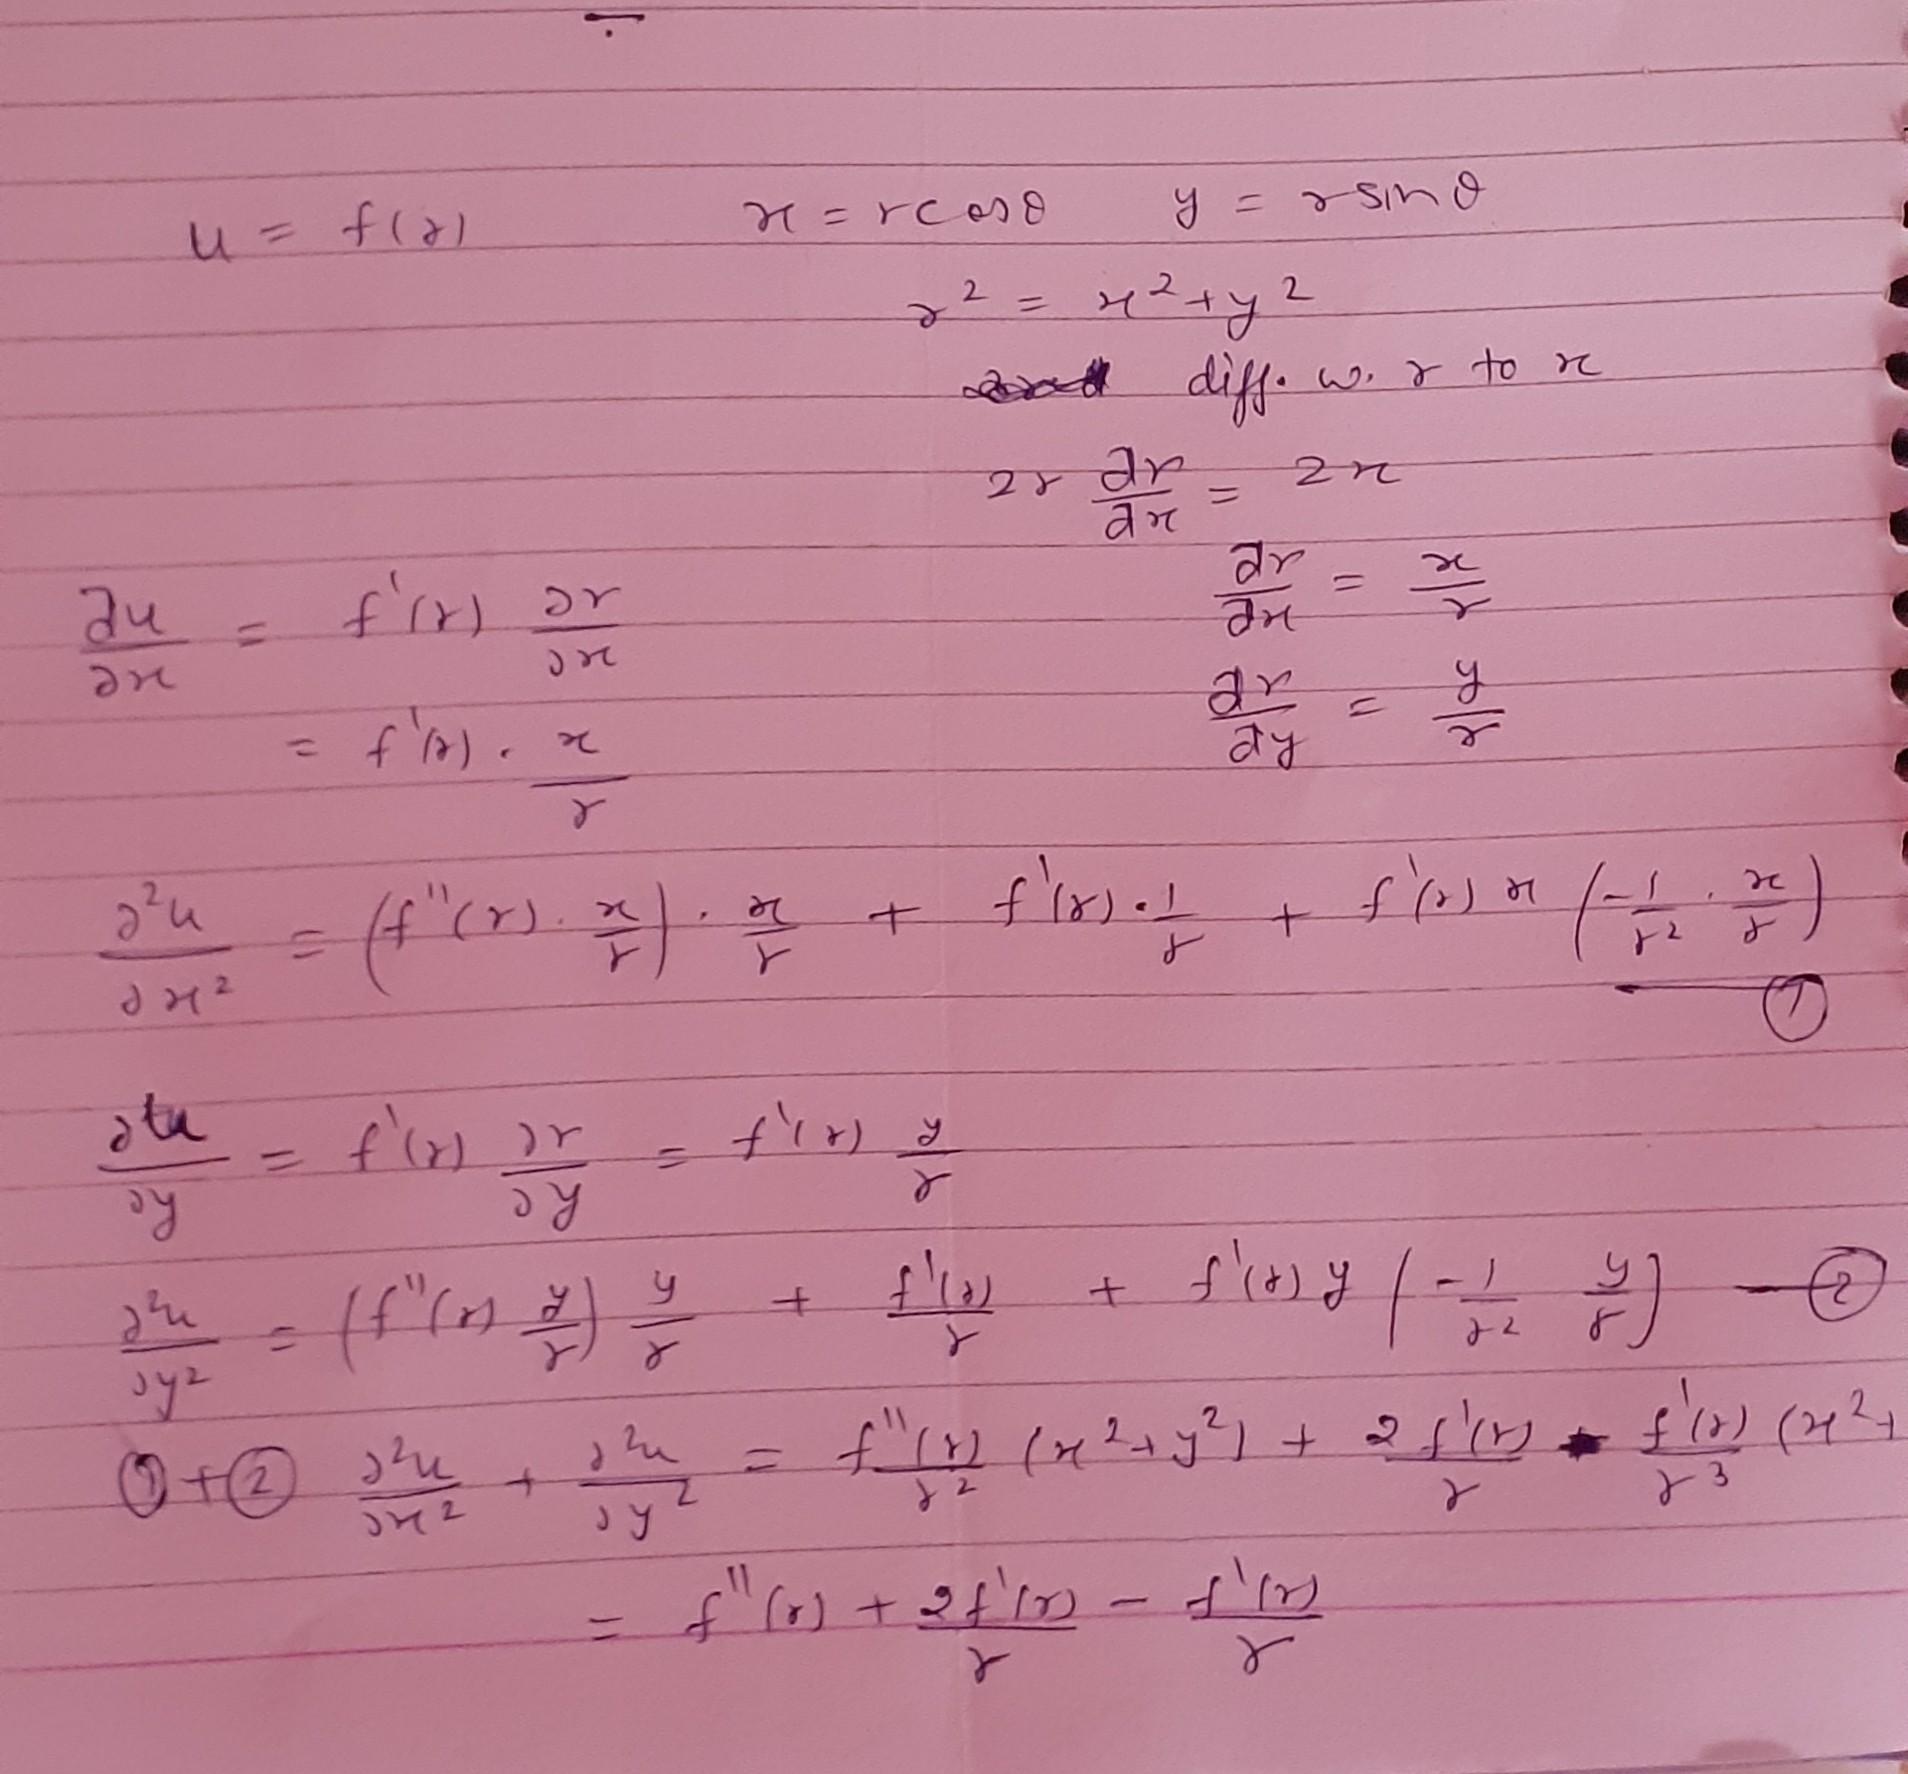 u = f(r) x = r cosθ y = r sinθ
r² = x² + y²
diff. w. r to x
2r ∂r/∂x = 2x
∂r/∂x = x/r
∂u/∂x = f'(r) ∂r/∂x
∂r/∂y = y/r
= f'(r) . x/r
∂²u/∂x² = (f''(r) . x/r) . x/r + f'(r) . 1/r + f'(r) x (-1/r² . x/r)
①
∂u/∂y = f'(r) ∂r/∂y = f'(r) y/r
∂²u/∂y² = (f''(r) y/r) y/r + f'(r)/r + f'(r) y (-1/r² y/r) — ②
① + ② ∂²u/∂x² + ∂²u/∂y² = f''(r)/r² (x² + y²) + 2f'(r)/r - f'(r)/r³ (x² +
= f''(r) + 2f'(r)/r - f'(r)/r